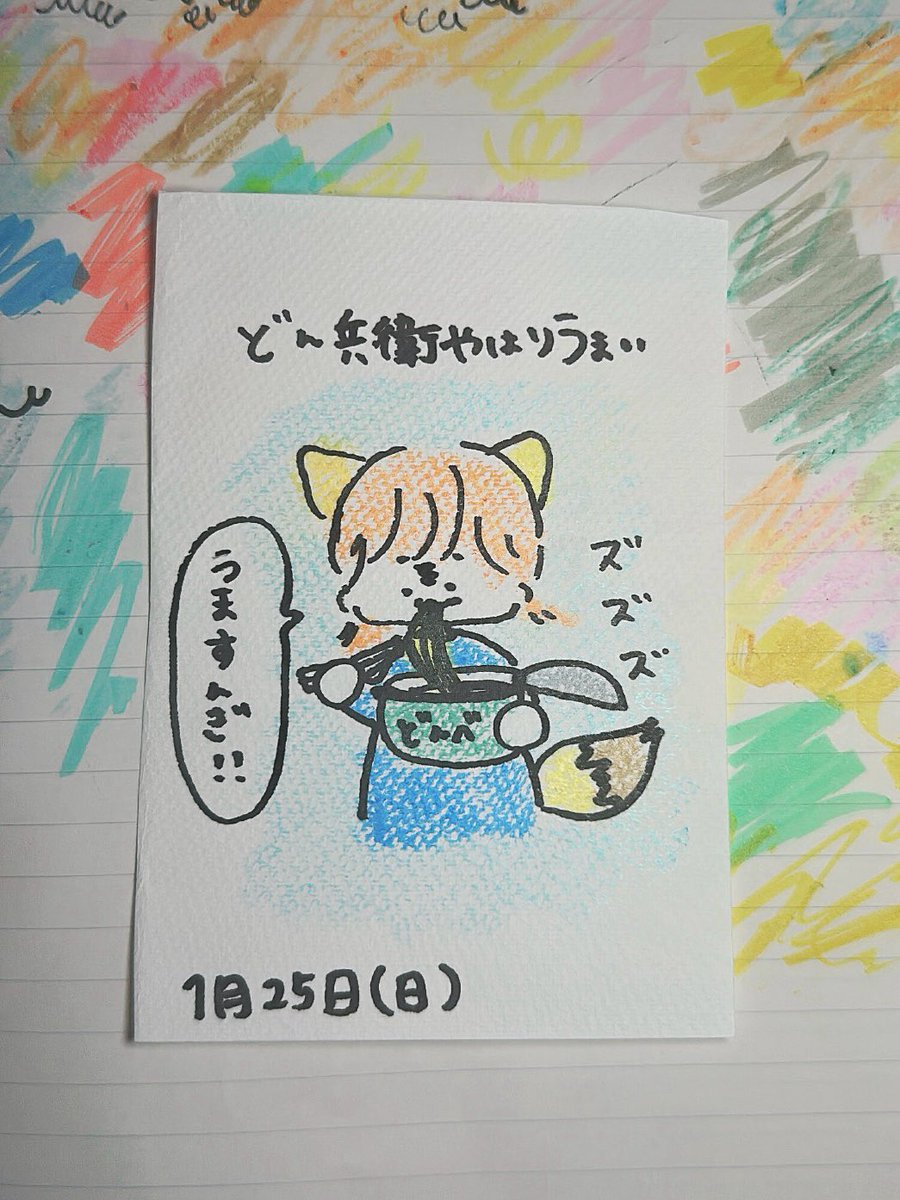 どん兵衛やはりうまい
うますんぎ!!
ズ
ズ
ズ
どんべ
1月25日(日)